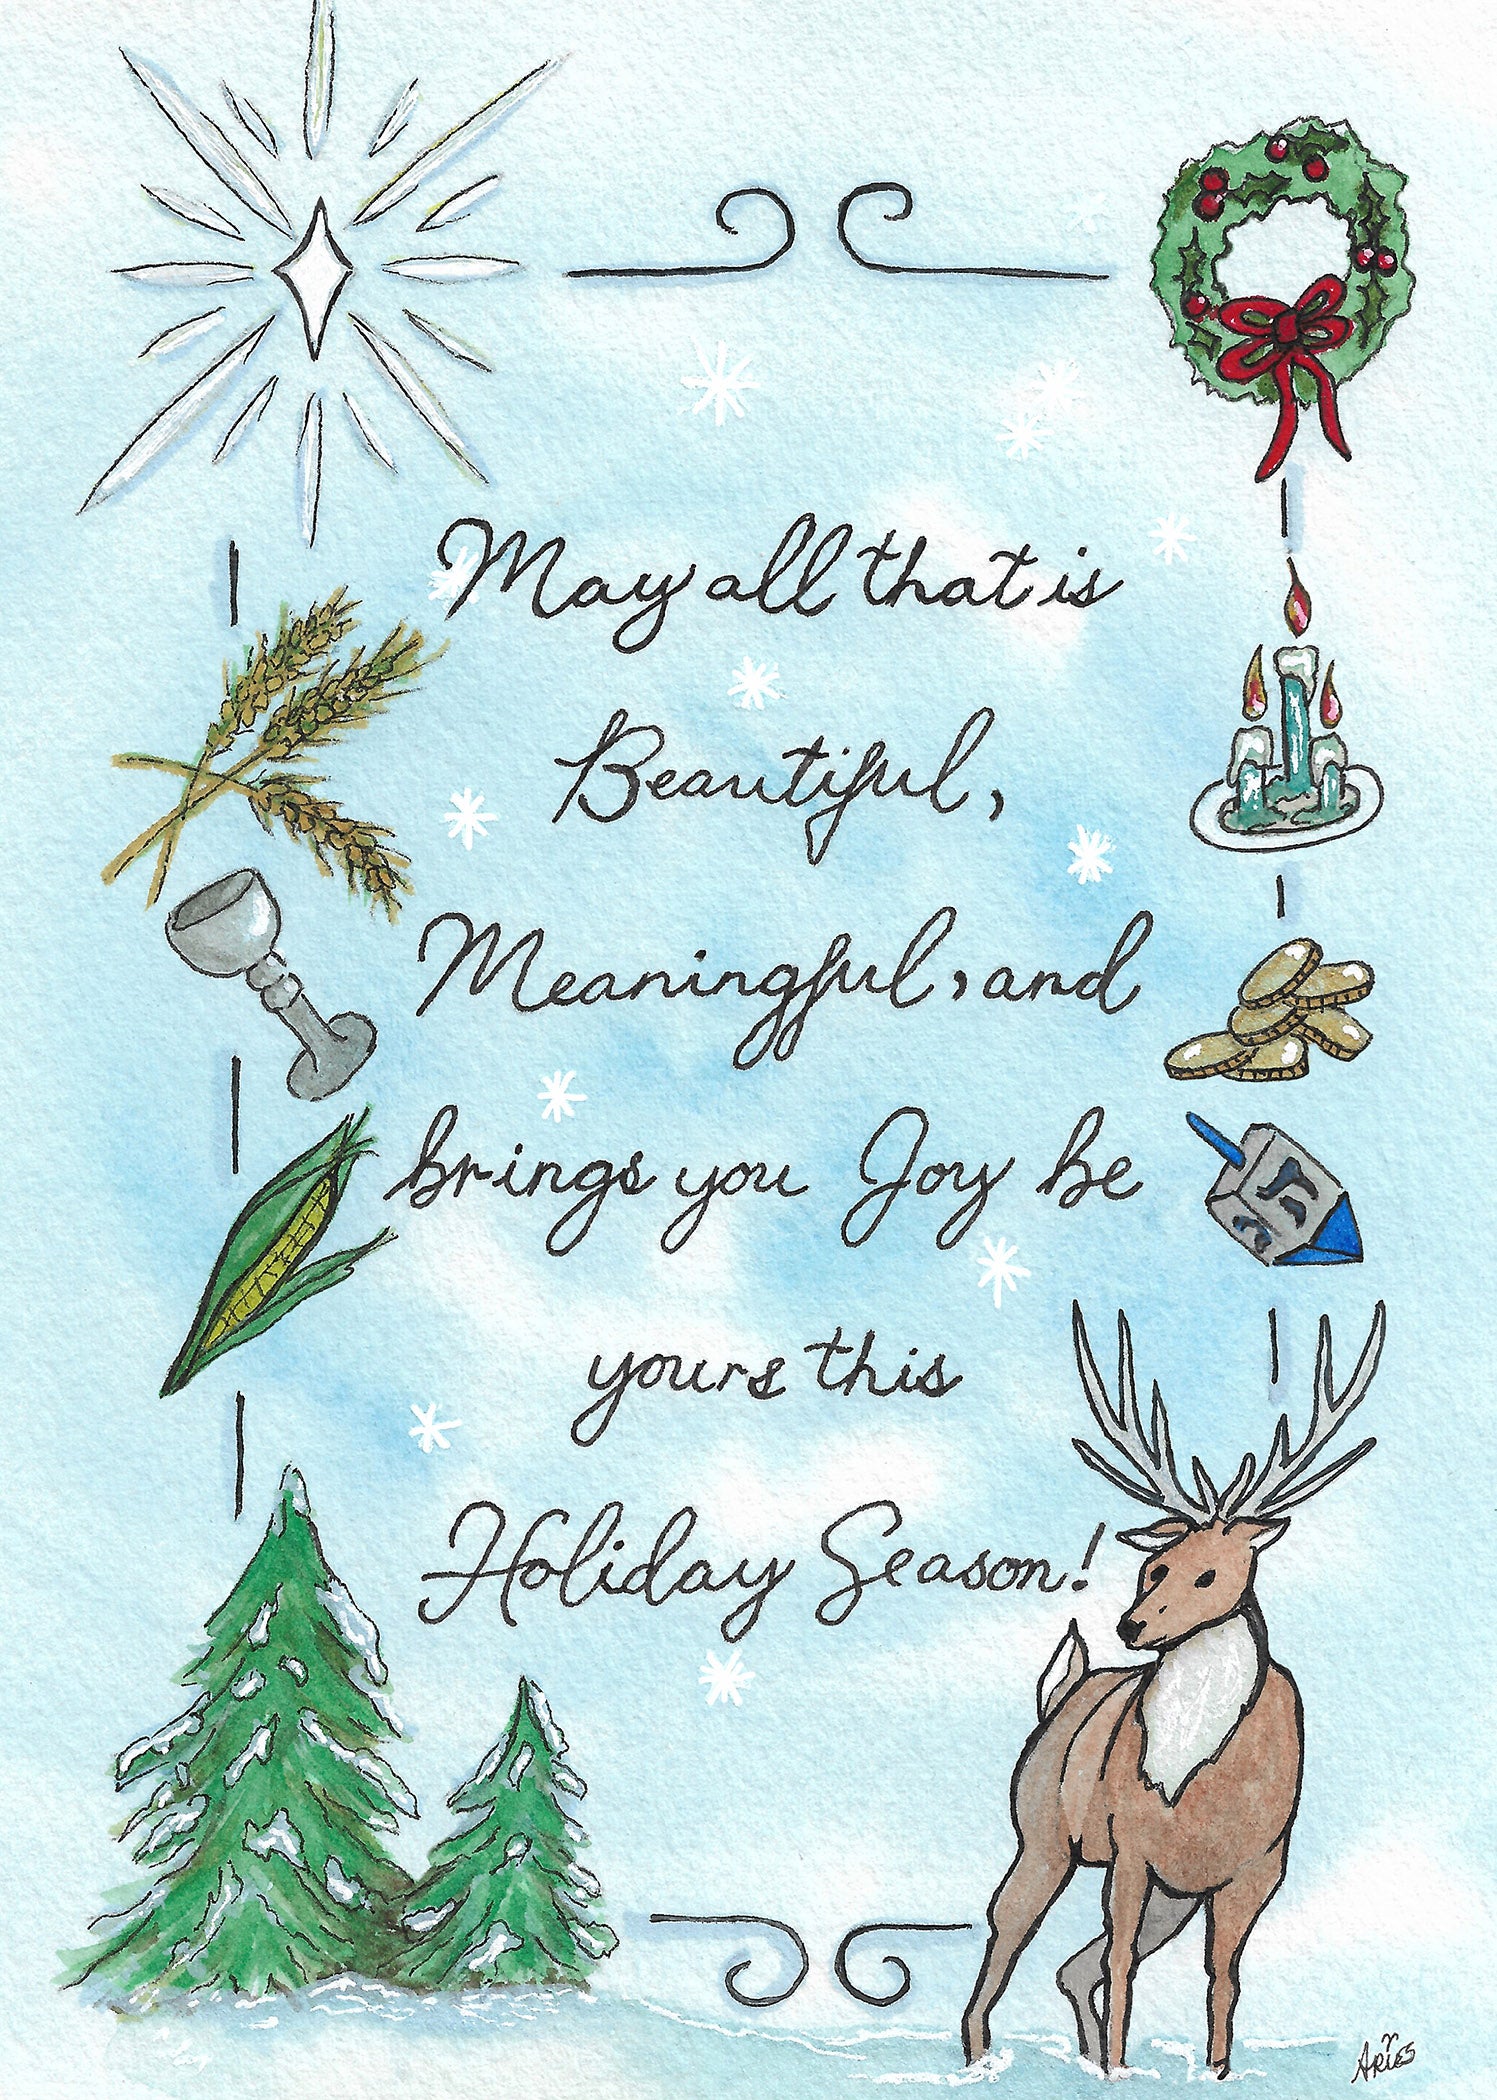 May all that is
Beautiful,
Meaningful, and
brings you Joy be
yours this
Holiday Season!
ARIES